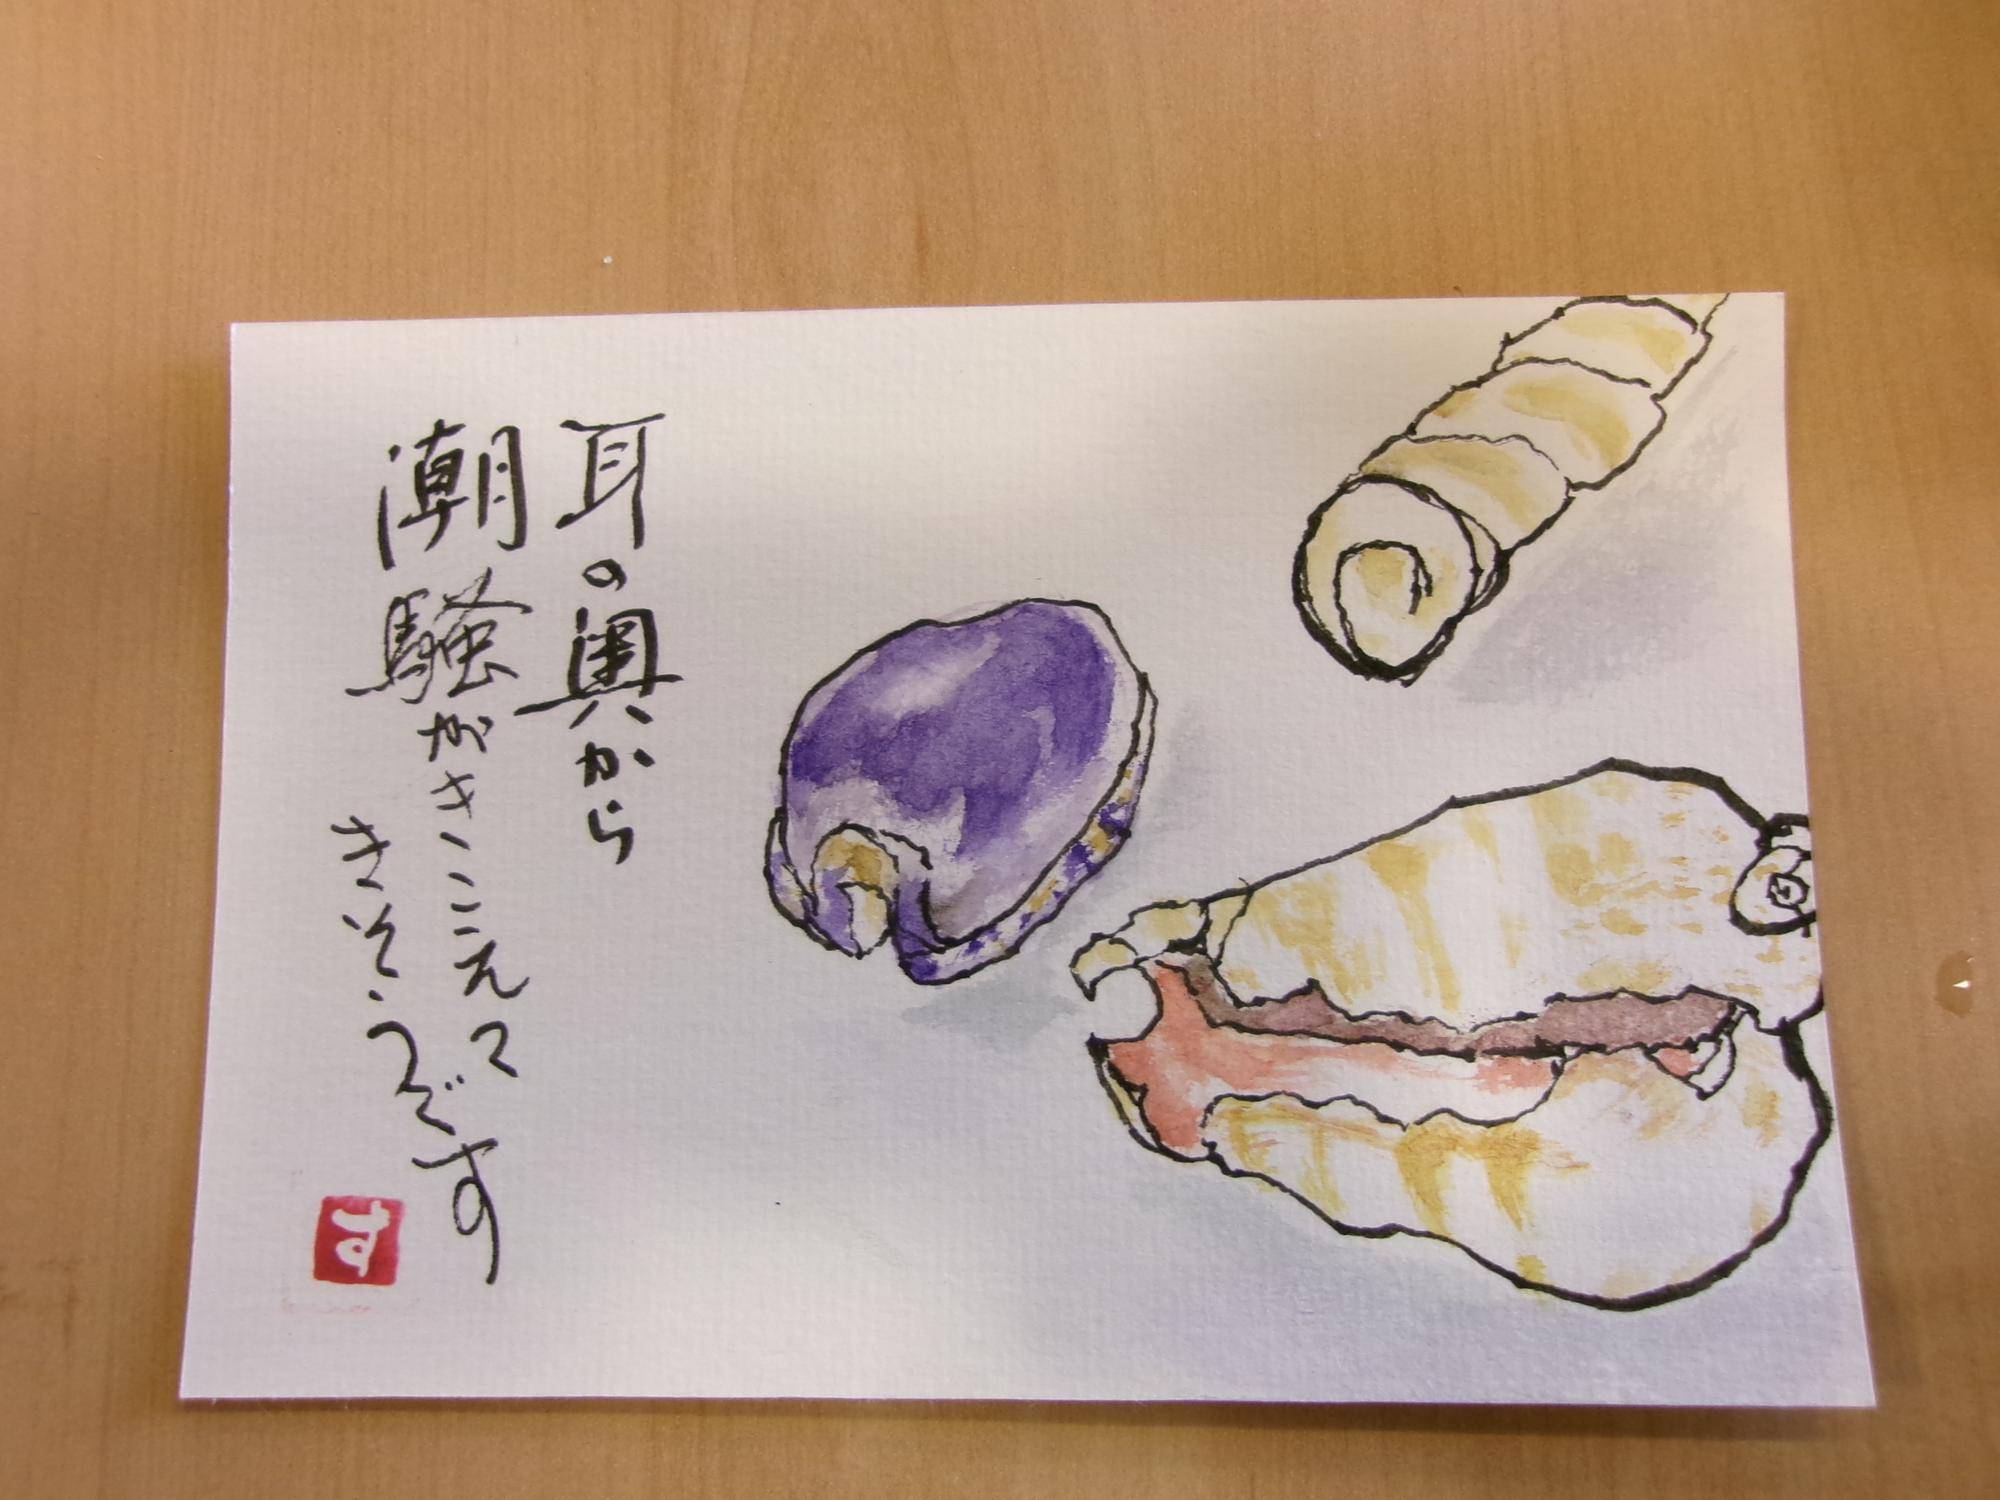 耳の奥から
潮騒がきこえて
きそうです
す